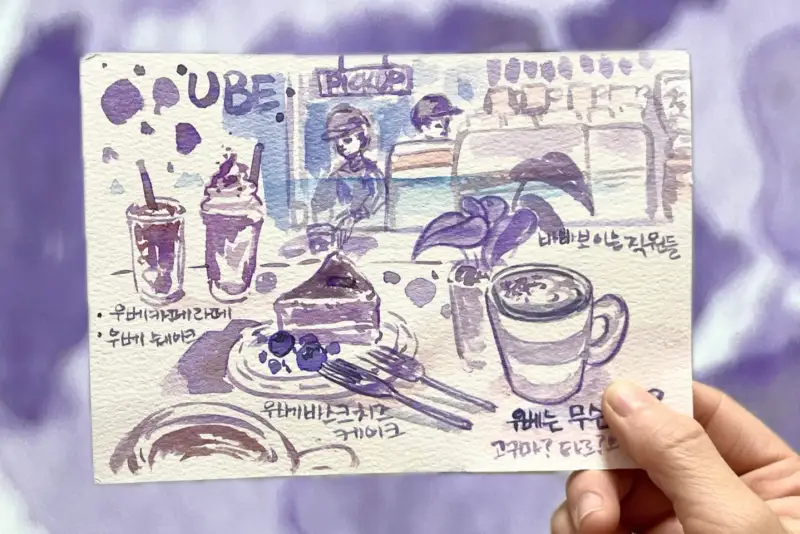 UBE
PICKUP
바빠보이는 직원들
• 우베카페라떼
• 우베 쉐이크
우베바스크치즈
케이크
우베는
고구마? 타로?